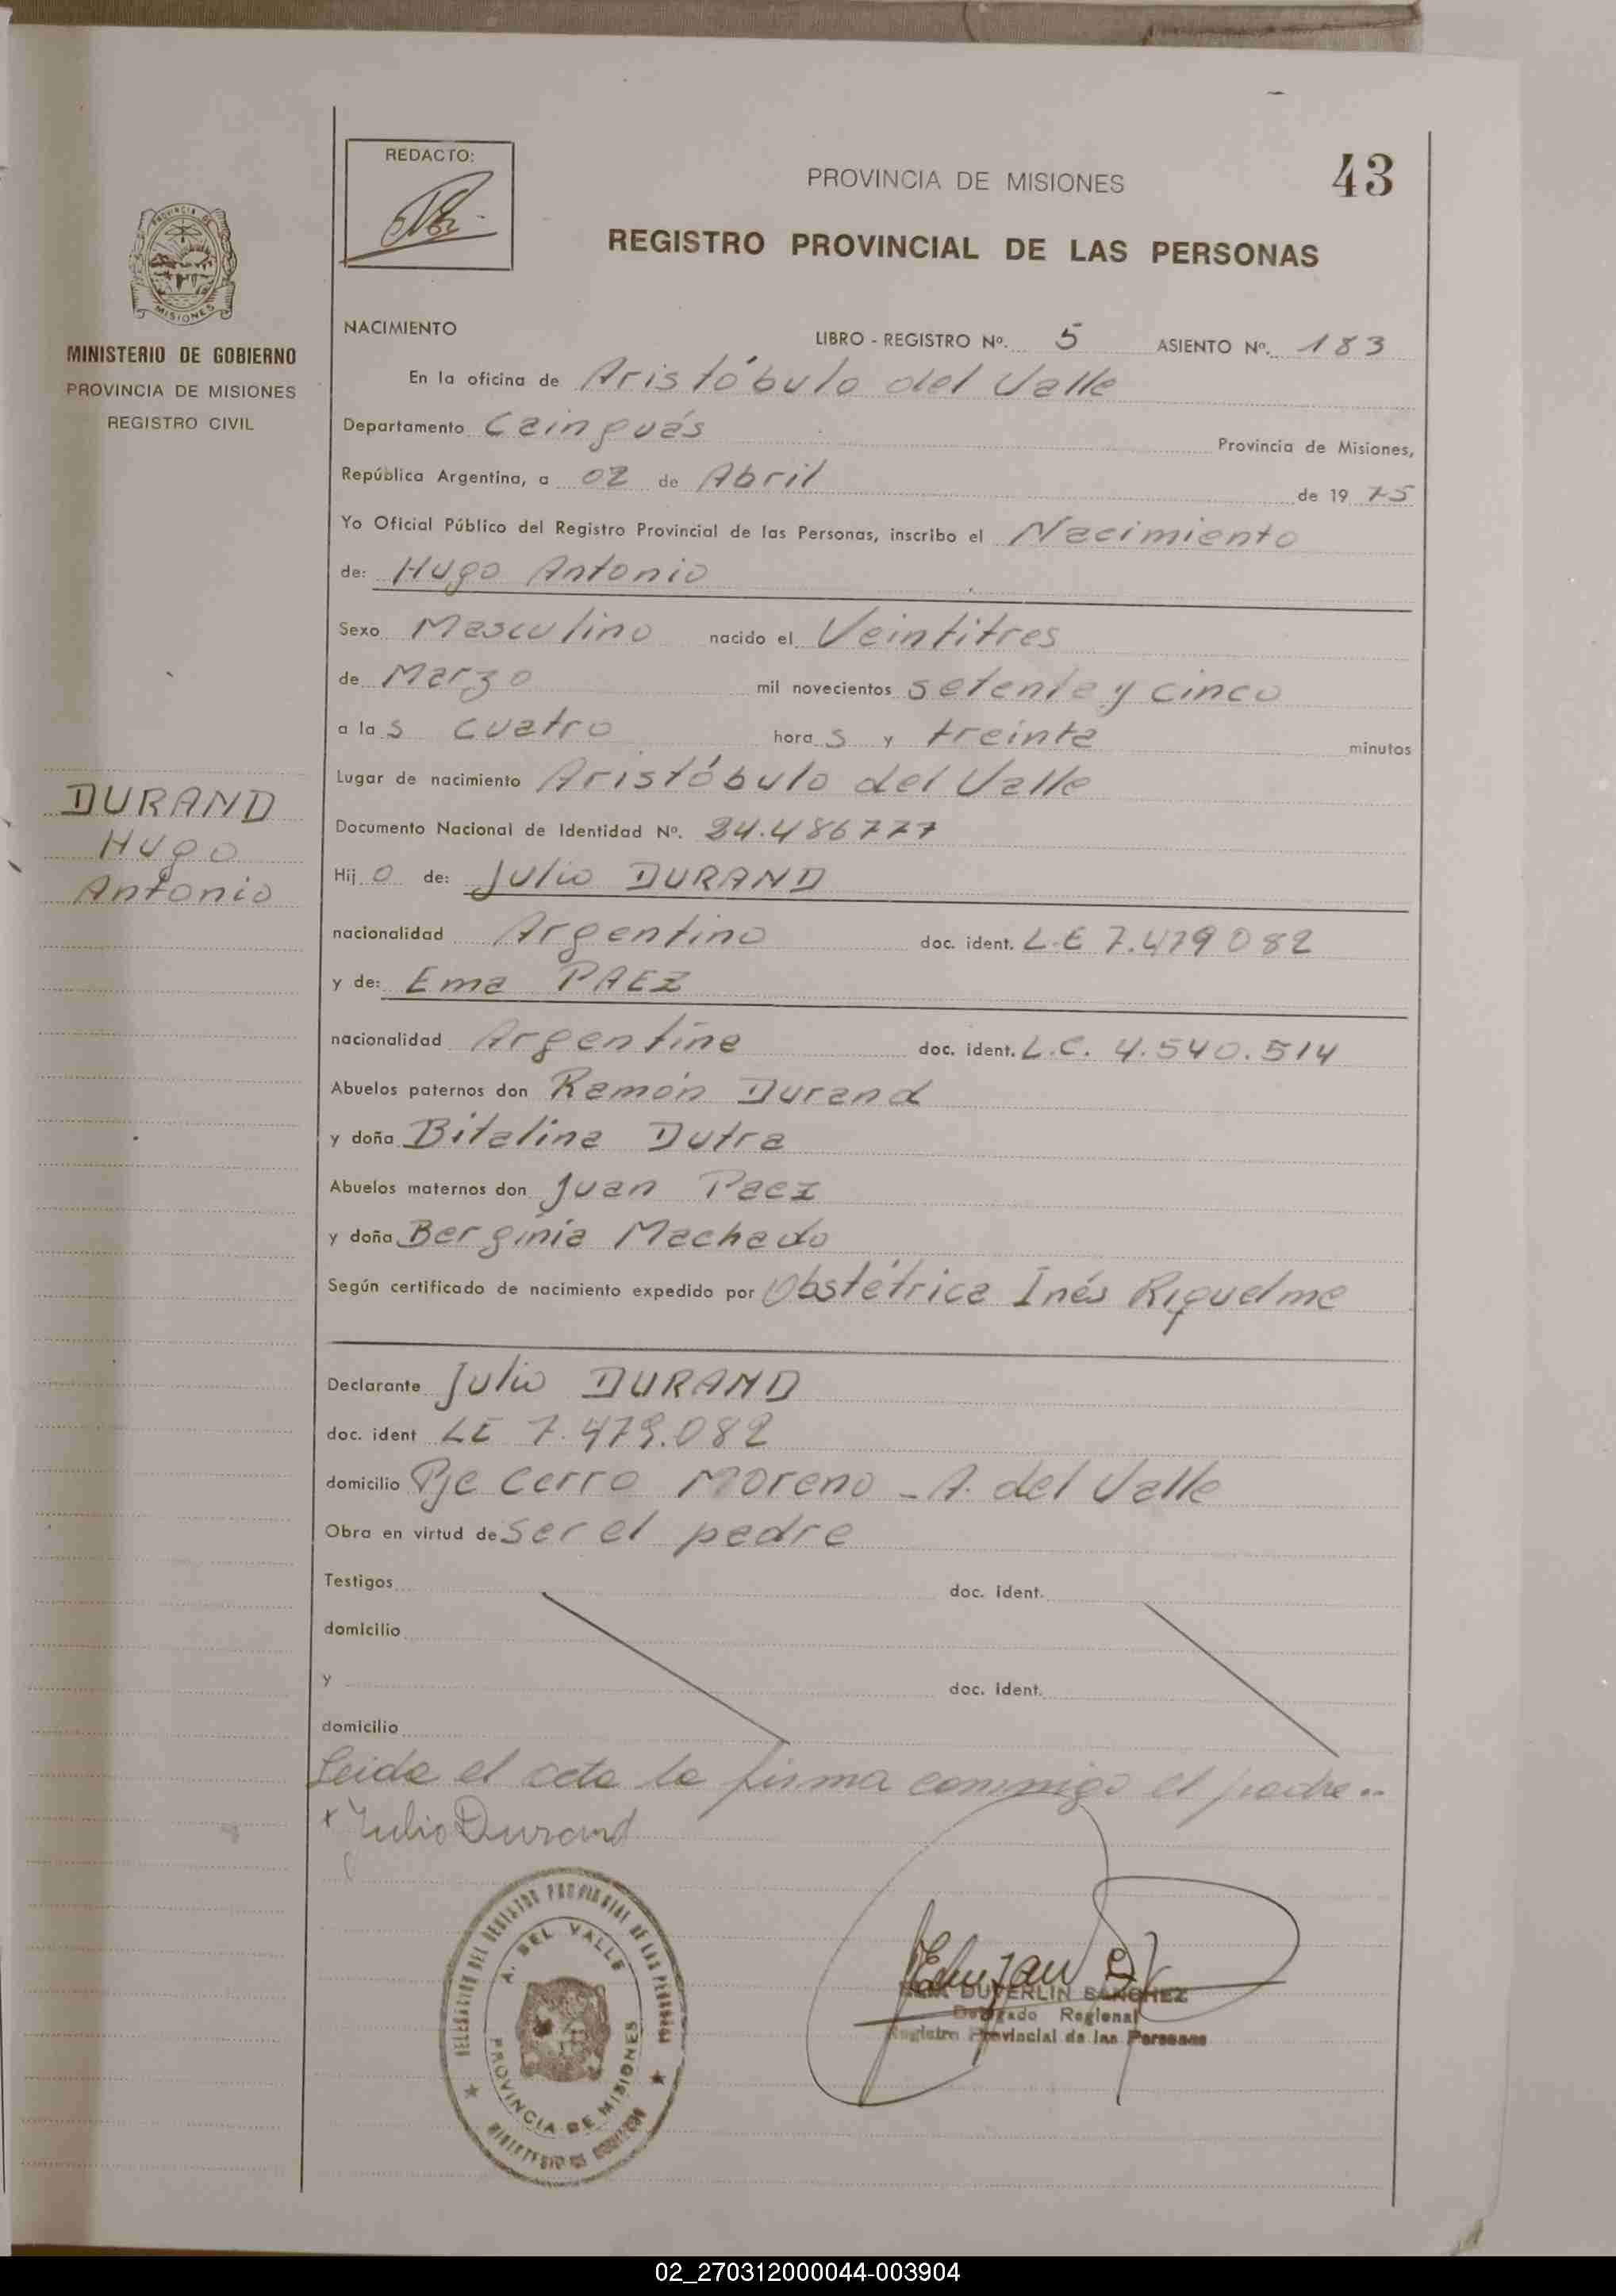 REDACTO:
PROVINCIA DE MISIONES
43
REGISTRO PROVINCIAL DE LAS PERSONAS
PROVINCIA DE
MISIONES
MINISTERIO DE GOBIERNO
PROVINCIA DE MISIONES
REGISTRO CIVIL
DURAND
Hugo
Antonio
NACIMIENTO LIBRO - REGISTRO Nº. 5 ASIENTO Nº. 183
En la oficina de Aristóbulo del Valle
Departamento Cainguás Provincia de Misiones,
República Argentina, a 02 de Abril de 1975
Yo Oficial Público del Registro Provincial de las Personas, inscribo el Nacimiento
de: Hugo Antonio
Sexo Masculino nacido el Veintitres
de Marzo mil novecientos setenta y cinco
a las cuatro horas y treinta minutos
Lugar de nacimiento Aristóbulo del Valle
Documento Nacional de Identidad Nº. 24.486777
Hijo de: Julio DURAND
nacionalidad Argentino doc. ident. L.E 7.479082
y de: Ema PAEZ
nacionalidad Argentina doc. ident. L.C. 4.540.514
Abuelos paternos don Ramón Durand
y doña Bitalina Dutra
Abuelos maternos don Juan Paez
y doña Berginia Machado
Según certificado de nacimiento expedido por Obstétrica Inés Riquelme
Declarante Julio DURAND
doc. ident LE 7.479.082
domicilio Pje Cerro Moreno - A. del Valle
Obra en virtud de ser el padre
Testigos doc. ident.
domicilio
y doc. ident.
domicilio
Leida el acta la firma conmigo el padre..
x Julio Durand
DELEGACION DEL REGISTRO PROVINCIAL DE LAS PERSONAS
A. DEL VALLE
PROVINCIA DE MISIONES
MINISTERIO DE GOBIERNO
DUVERLIN SANCHEZ
Delegado Regional
Registro Provincial de las Personas
02_270312000044-003904